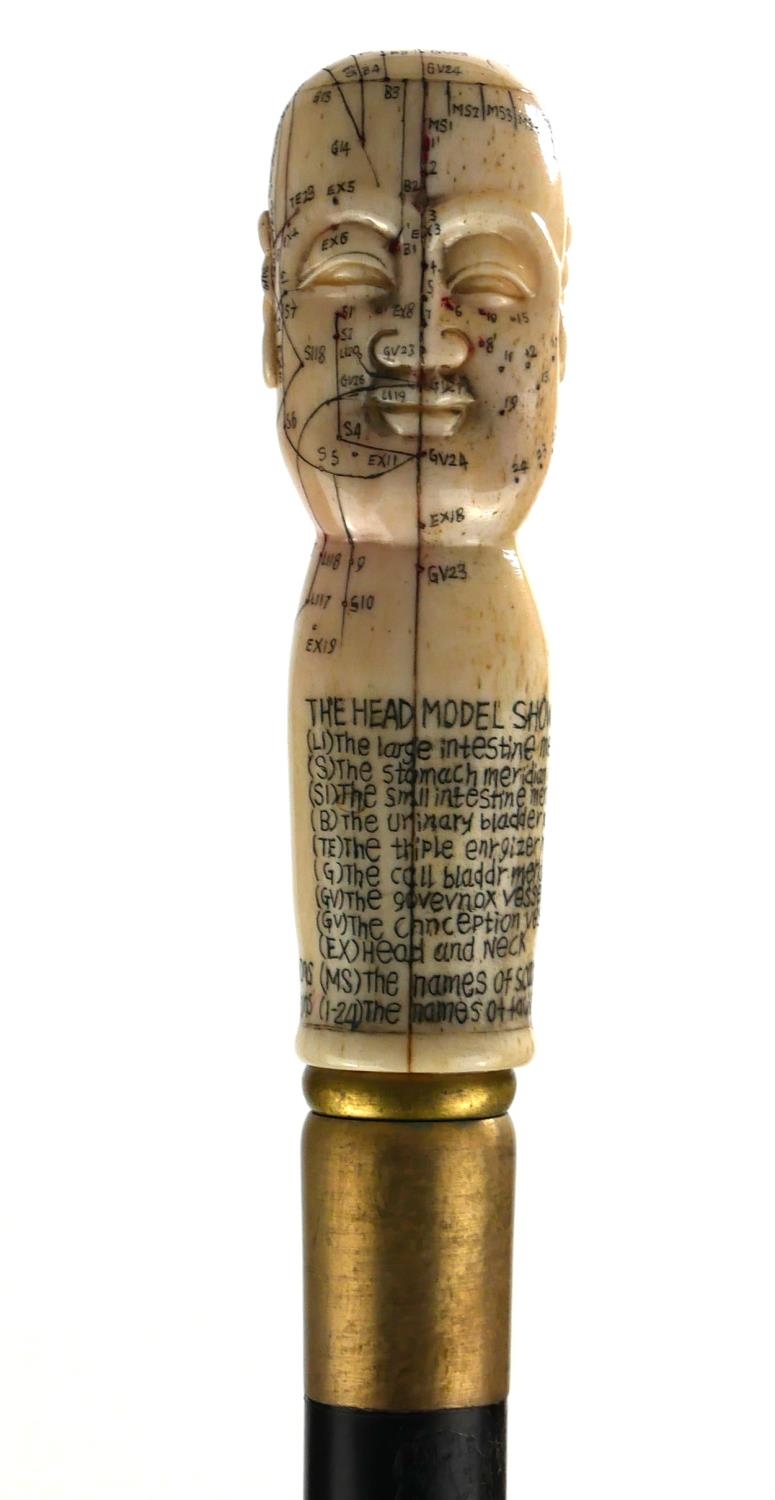 GV24
B4
G13
B3
MS1
MS2
MS3
G14
1
2
B2
TE23
EX5
3
EX3
EX6
B1
4
5
S7
S1
EX8
6
15
S2
8
SI18
LI20
GV23
11
12
GV26
LI19
19
S6
S4
GV24
S5
EX11
24
23
EX18
LI18
9
GV23
LI17
S10
EX19
THE HEAD MODEL SHO
(LI)The large intestine me
(S)The stomach meridian
(SI)The smll intestine mer
(B)The urinary bladder
(TE)The thiple enrgizer
(G)The call bladdr mer
(GV)The governox vesse
(GV)The cnnception ve
(EX)Head and Neck
(MS)The names of sca
(1-24)The names of fac